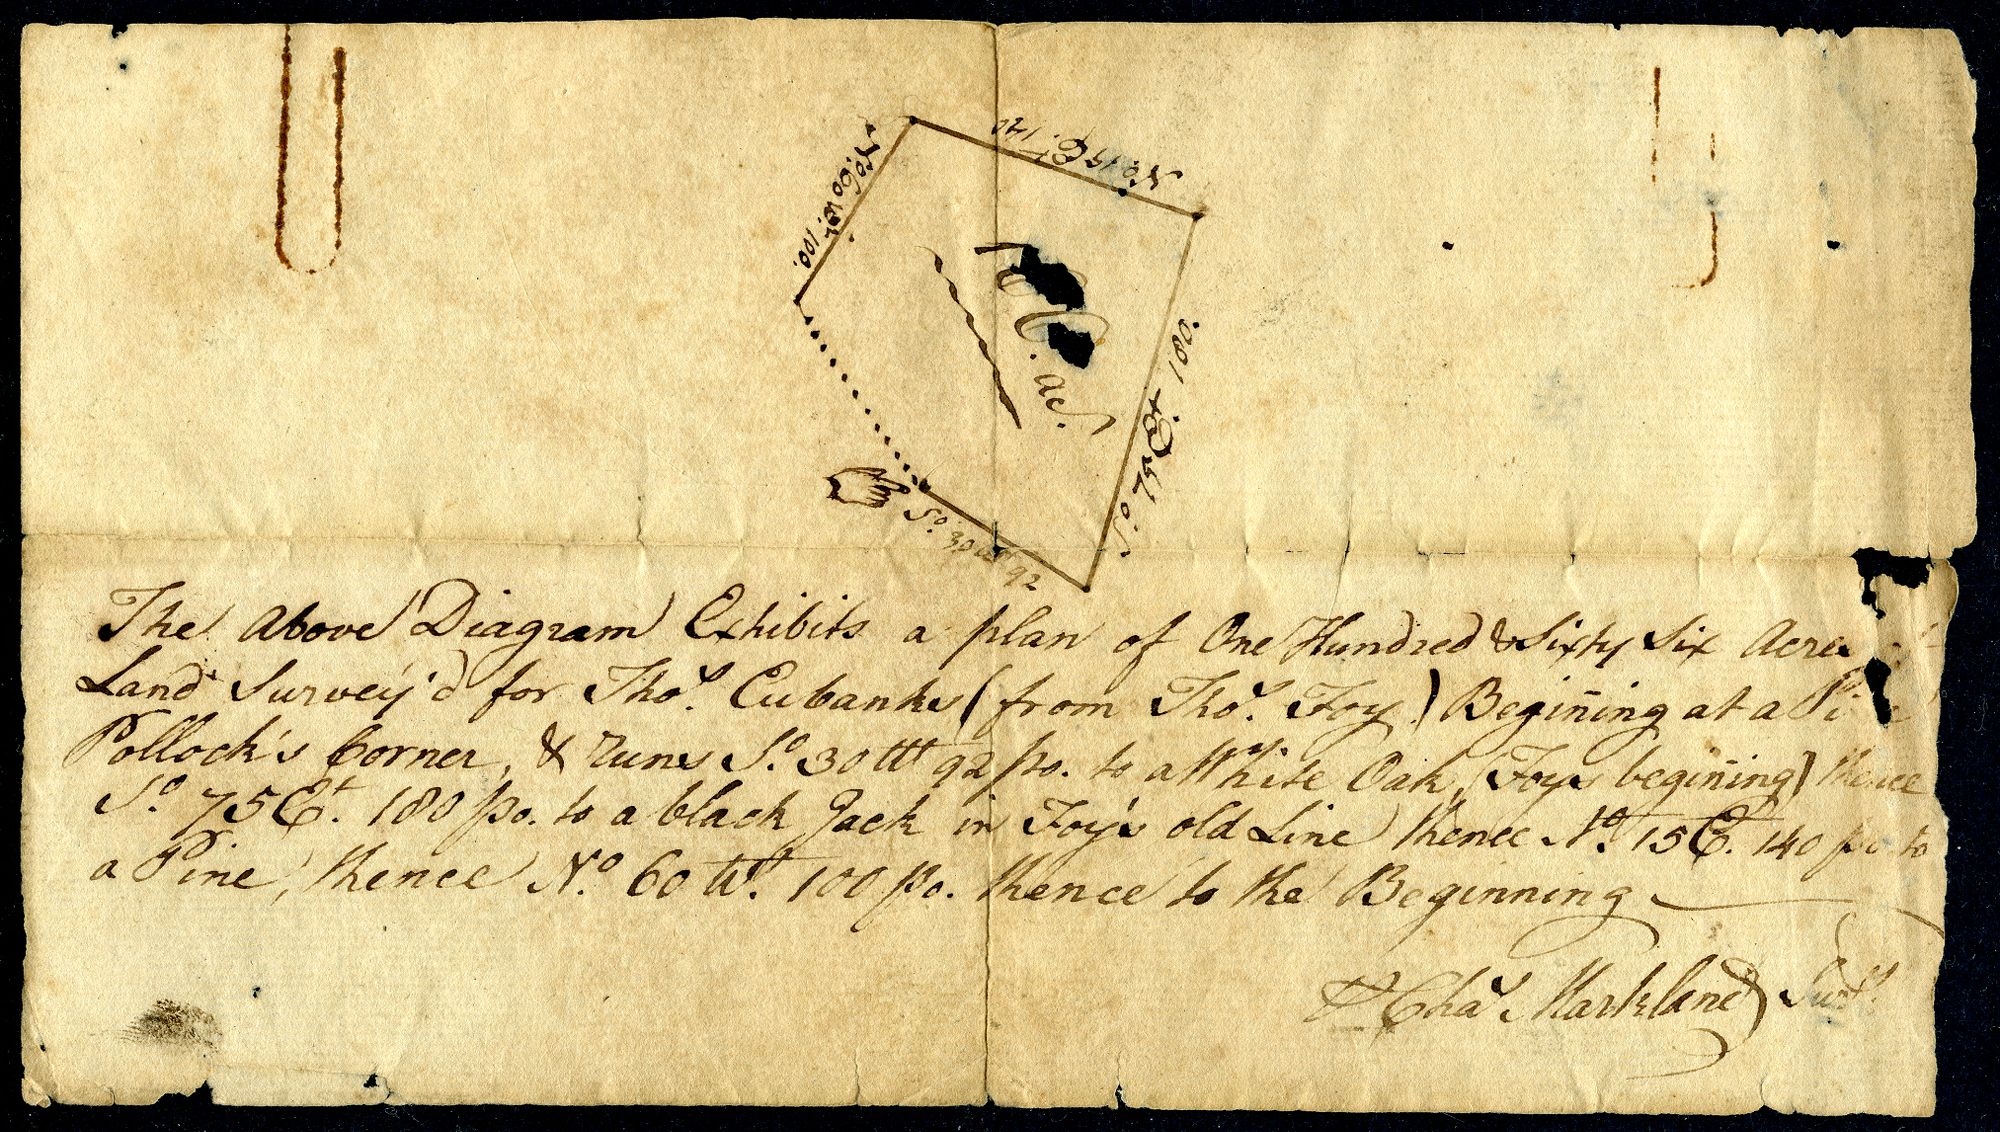 No. 60 Wt. 100.
No. 15 Et. 140
ac.
So. 75 Et. 180.
So. 30 Wt 92
The Above Diagram Exhibits a plan of One Hundred & Sixty Six Acres
Land Survey'd for Thos. Eubanks (from Thos. Foy) Begin̄ing at a
Pollock's Corner, & runs So. 30 Wt 92 po. to a White Oak, (Foys begin̄ing) thence
So. 75 Et. 180 po. to a black Jack in Foy's old Line thence No. 15 Et. 140 po. to
a Pine, thence No. 60 Wt. 100 po. thence to the Beginning
Chas Markland Survr.